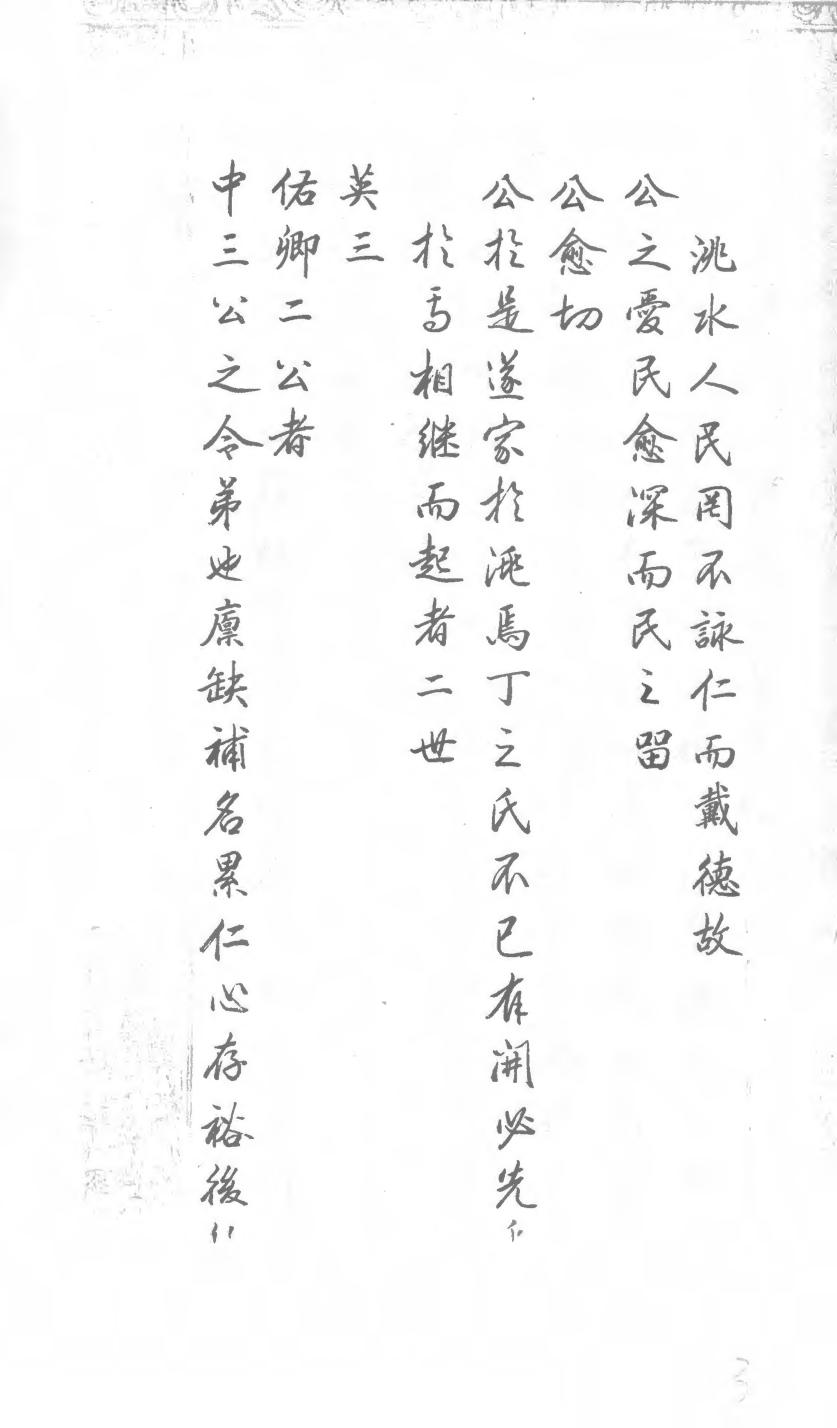 洮水人民罔不詠仁而戴德故
公之愛民愈深而民之留
公愈切
公於是遂家於洮焉丁之氏不已有開必先
於焉相继而起者二世
英三
佑卿二公者
中三公之令弟也廪缺補名累仁心存裕後
3